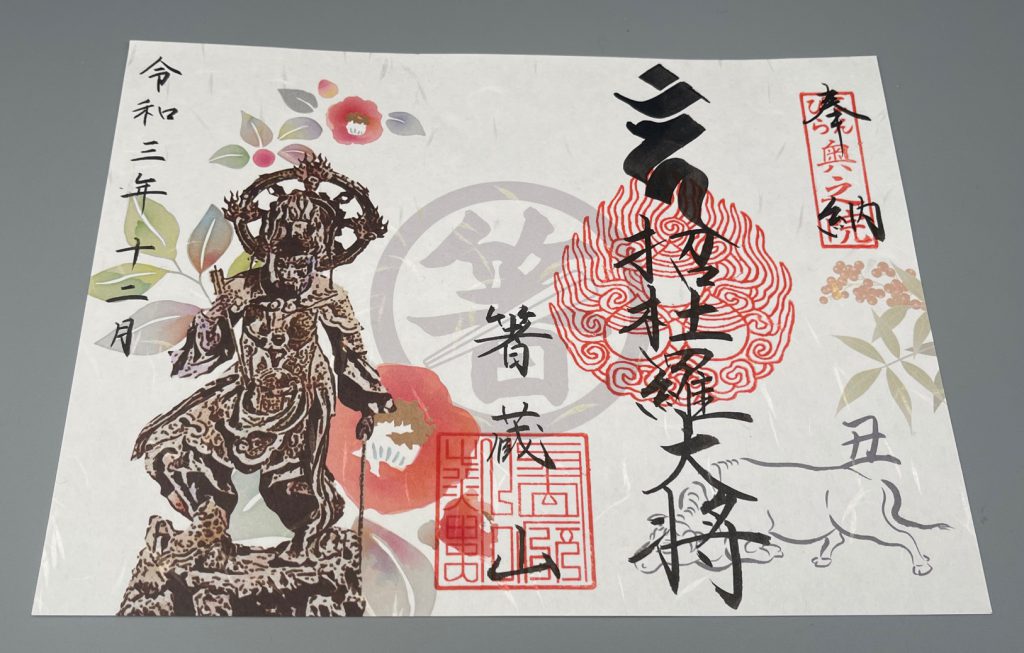 奉納
こんぴら奥之院
招杜羅大将
丑
箸
箸蔵山
令和三年十二月